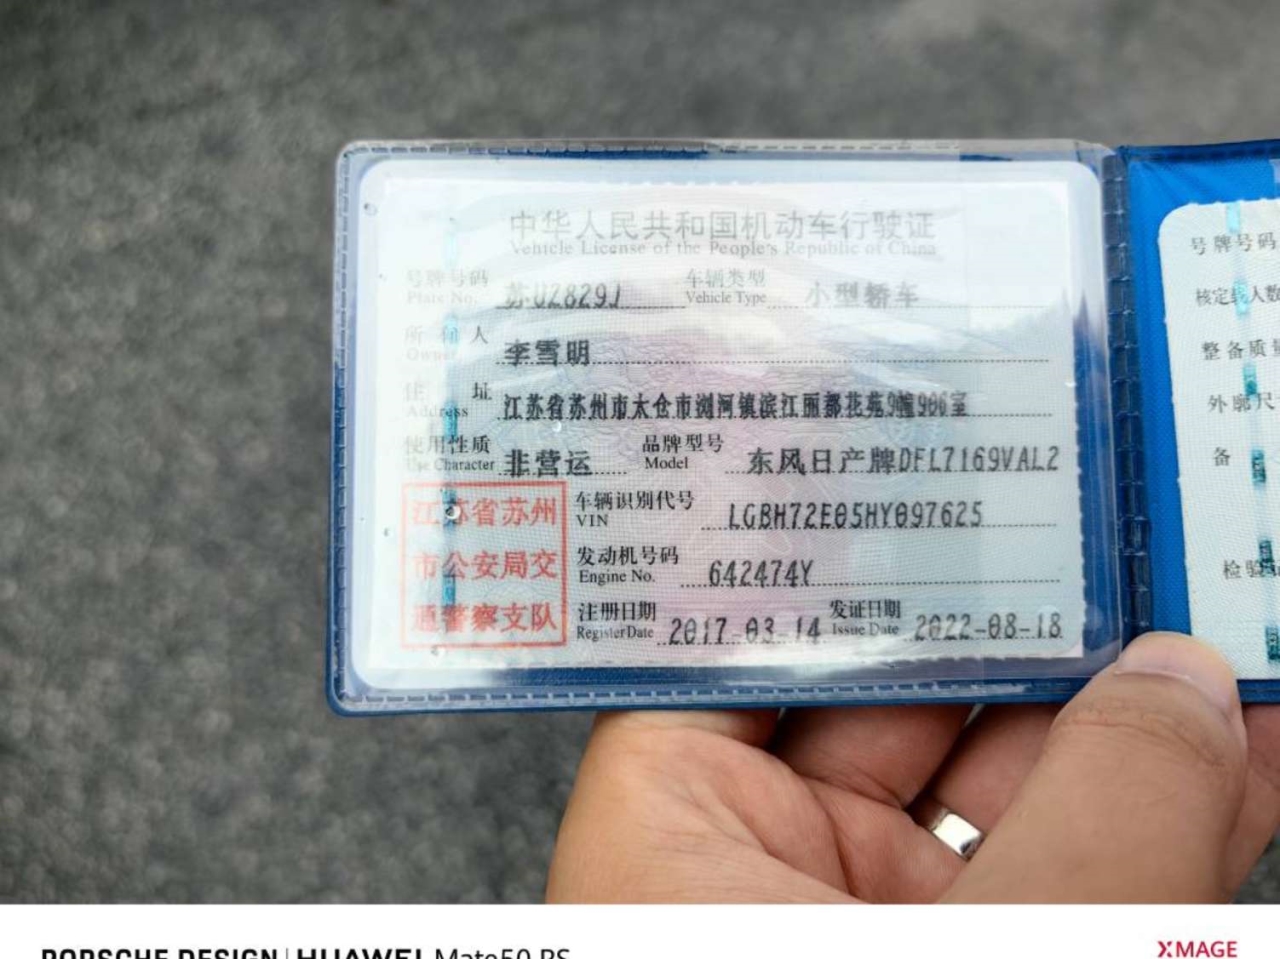 中华人民共和国机动车行驶证
Vehicle License of the People's Republic of China
号牌号码 苏UZ829J 车辆类型 小型轿车
Plate No. Vehicle Type
所有人 李雪明
Owner
住址 江苏省苏州市太仓市浏河镇滨江丽都花苑9幢906室
Address
使用性质 非营运 品牌型号 东风日产牌DFL7169VAL2
Use Character Model
江苏省苏州
市公安局交
通警察支队
车辆识别代号 LGBH72E05HY097625
VIN
发动机号码 642474Y
Engine No.
注册日期 2017-03-14 发证日期 2022-08-18
Register Date Issue Date
号牌号码
核定载人数
整备质量
外廓尺
备
检验
PORSCHE DESIGN | HUAWEI Mate50 RS
XMAGE